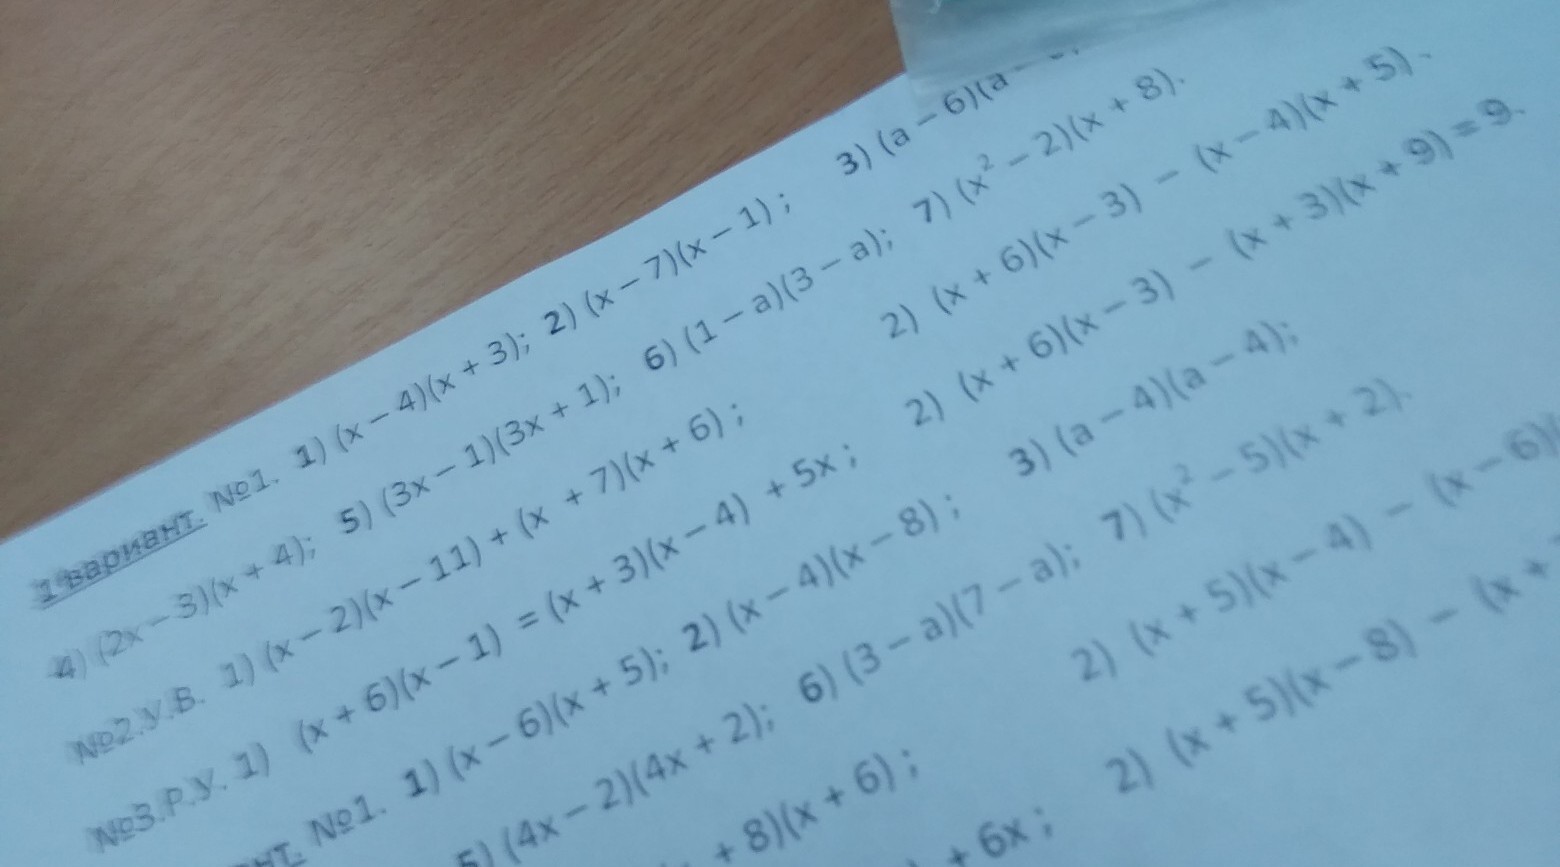 1 вариант. №1. 1) (x – 4)(x + 3); 2) (x – 7)(x – 1); 3) (a – 6)(a –
4) (2x – 3)(x + 4); 5) (3x – 1)(3x + 1); 6) (1 – a)(3 – a); 7) (x² – 2)(x + 8).
№2.У.В. 1) (x – 2)(x – 11) + (x + 7)(x + 6); 2) (x + 6)(x – 3) – (x – 4)(x + 5).
№3.Р.У. 1) (x + 6)(x – 1) = (x + 3)(x – 4) + 5x; 2) (x + 6)(x – 3) – (x + 3)(x + 9) = 9.
№1. 1) (x – 6)(x + 5); 2) (x – 4)(x – 8); 3) (a – 4)(a – 4);
5) (4x – 2)(4x + 2); 6) (3 – a)(7 – a); 7) (x² – 5)(x + 2).
+ 8)(x + 6); 2) (x + 5)(x – 4) – (x – 6)(
+ 6x; 2) (x + 5)(x – 8) – (x +